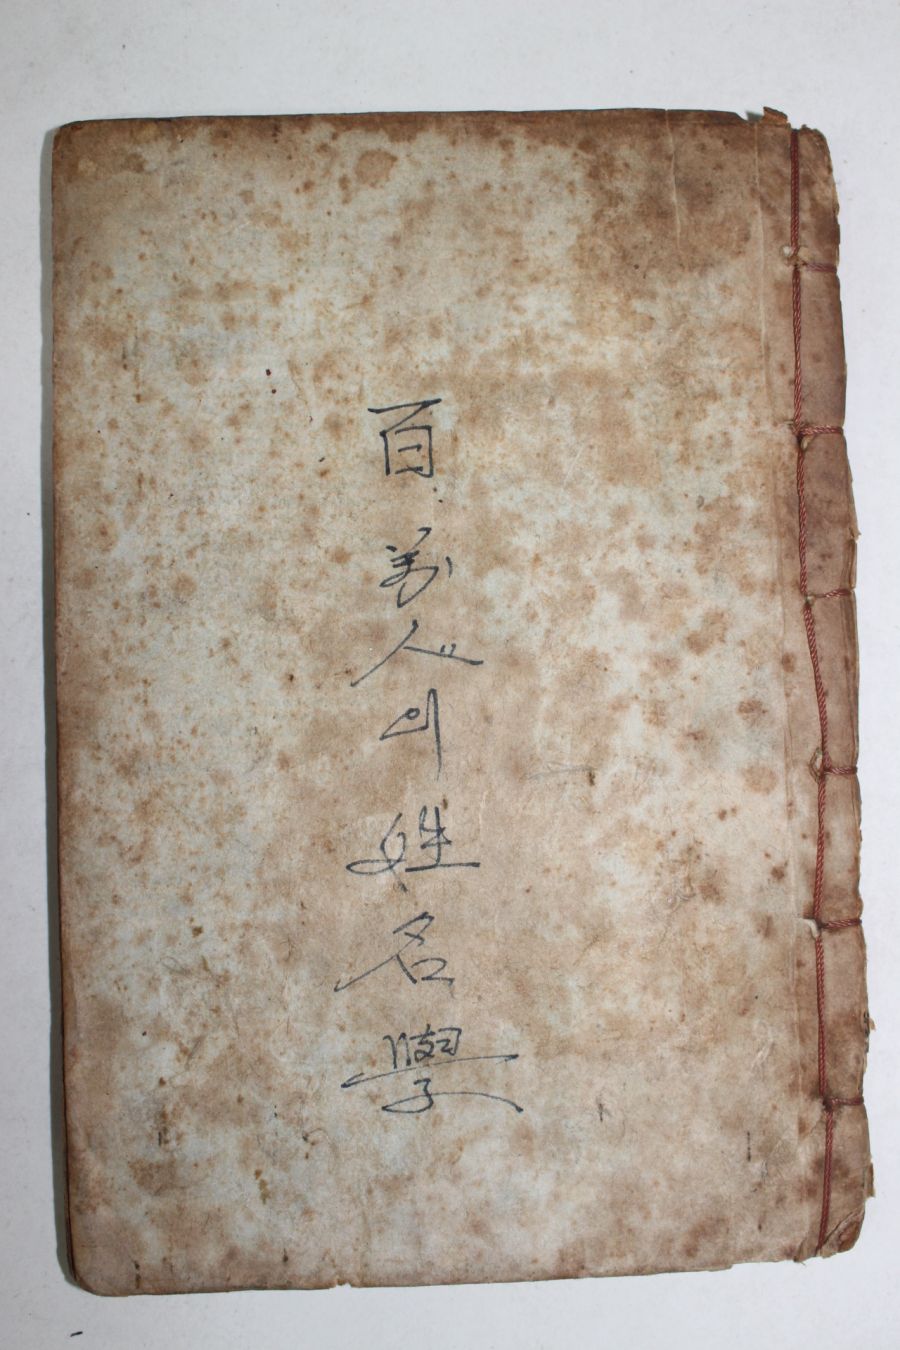 百萬人의姓名學